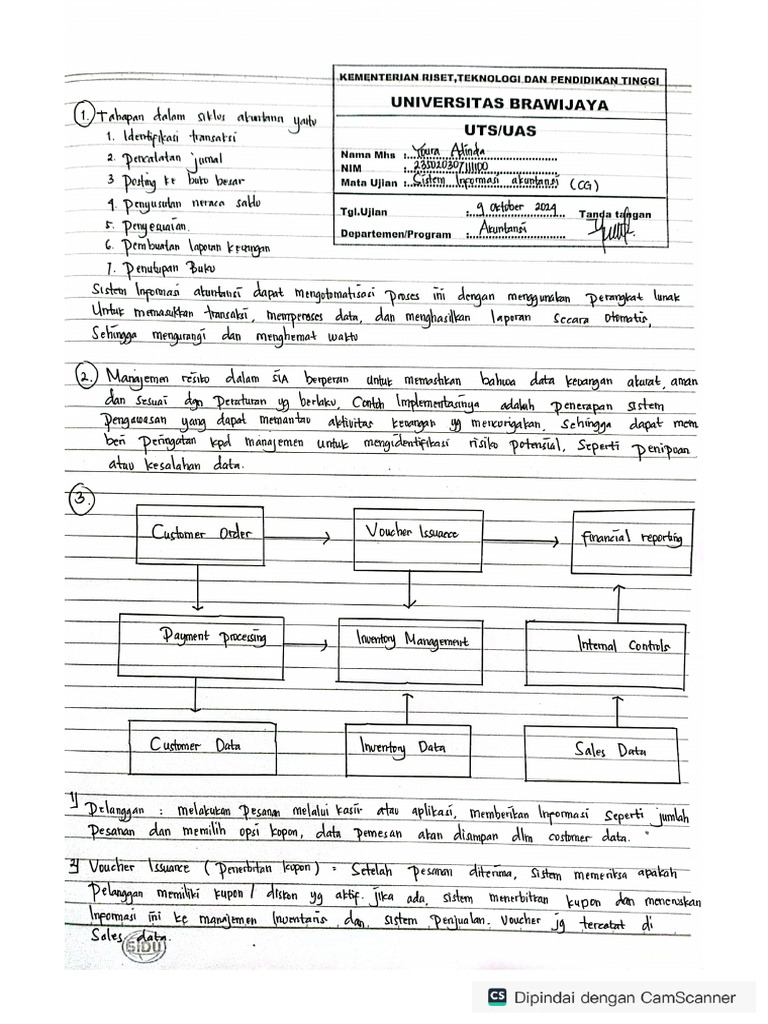 KEMENTERIAN RISET,TEKNOLOGI DAN PENDIDIKAN TINGGI
UNIVERSITAS BRAWIJAYA
UTS/UAS
Nama Mhs : Youra Adinda
NIM : 235020307111100
Mata Ujian : Sistem Informasi akuntansi (CG)
Tgl.Ujian : 9 Oktober 2024 Tanda tangan
Departemen/Program : Akuntansi
1. Tahapan dalam siklus akuntansi yaitu
1. Identifikasi transaksi
2. Pencatatan jurnal
3 Posting ke buku besar
4. Penyusunan neraca saldo
5. Penyesuaian.
6. Pembuatan laporan keuangan
7. Penutupan Buku
Sistem Informasi akuntansi dapat mengotomatisasi proses ini dengan menggunakan perangkat lunak
Untuk memasukkan transaksi, memperoses data, dan menghasilkan laporan secara otomatis,
Sehingga mengurangi dan menghemat waktu
2. Manajemen resiko dalam SIA berperan untuk memastikan bahwa data keuangan akurat, aman
dan sesuai dgn Peraturan yg berlaku. Contoh Implementasinya adalah penerapan sistem
Pengawasan yang dapat memantau aktivitas keuangan yg mencurigakan, Sehingga dapat mem
beri Peringatan kpd manajemen untuk mengidentifikasi risiko potensial, Seperti penipuan
atau kesalahan data.
3.
Customer Order
Voucher Issuance
Financial reporting
Payment processing
Inventory Management
Internal Controls
Customer Data
Inventory Data
Sales Data
1) Pelanggan : melakukan Pesanan melalui kasir atau aplikasi, memberikan Informasi Seperti jumlah
Pesanan dan memilih opsi kupon, data pemesan akan disimpan dlm costomer data.
2) Voucher Issuance (Penerbitan kupon) : Setelah pesanan diterima, Sistem memeriksa apakah
Pelanggan memiliki kupon / diskon yg aktif. jika ada, sistem menerbitkan kupon dan meneruskan
Informasi ini ke manajemen Inventaris dan sistem penjualan. Voucher jg tercatat di
Sales data.
SIDU
CS Dipindai dengan CamScanner